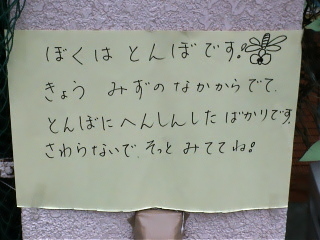 ぼくは とんぼです。
きょう みずのなかからでて、
とんぼに へんしんした ばかりです。
さわらないで、そっと みててね。